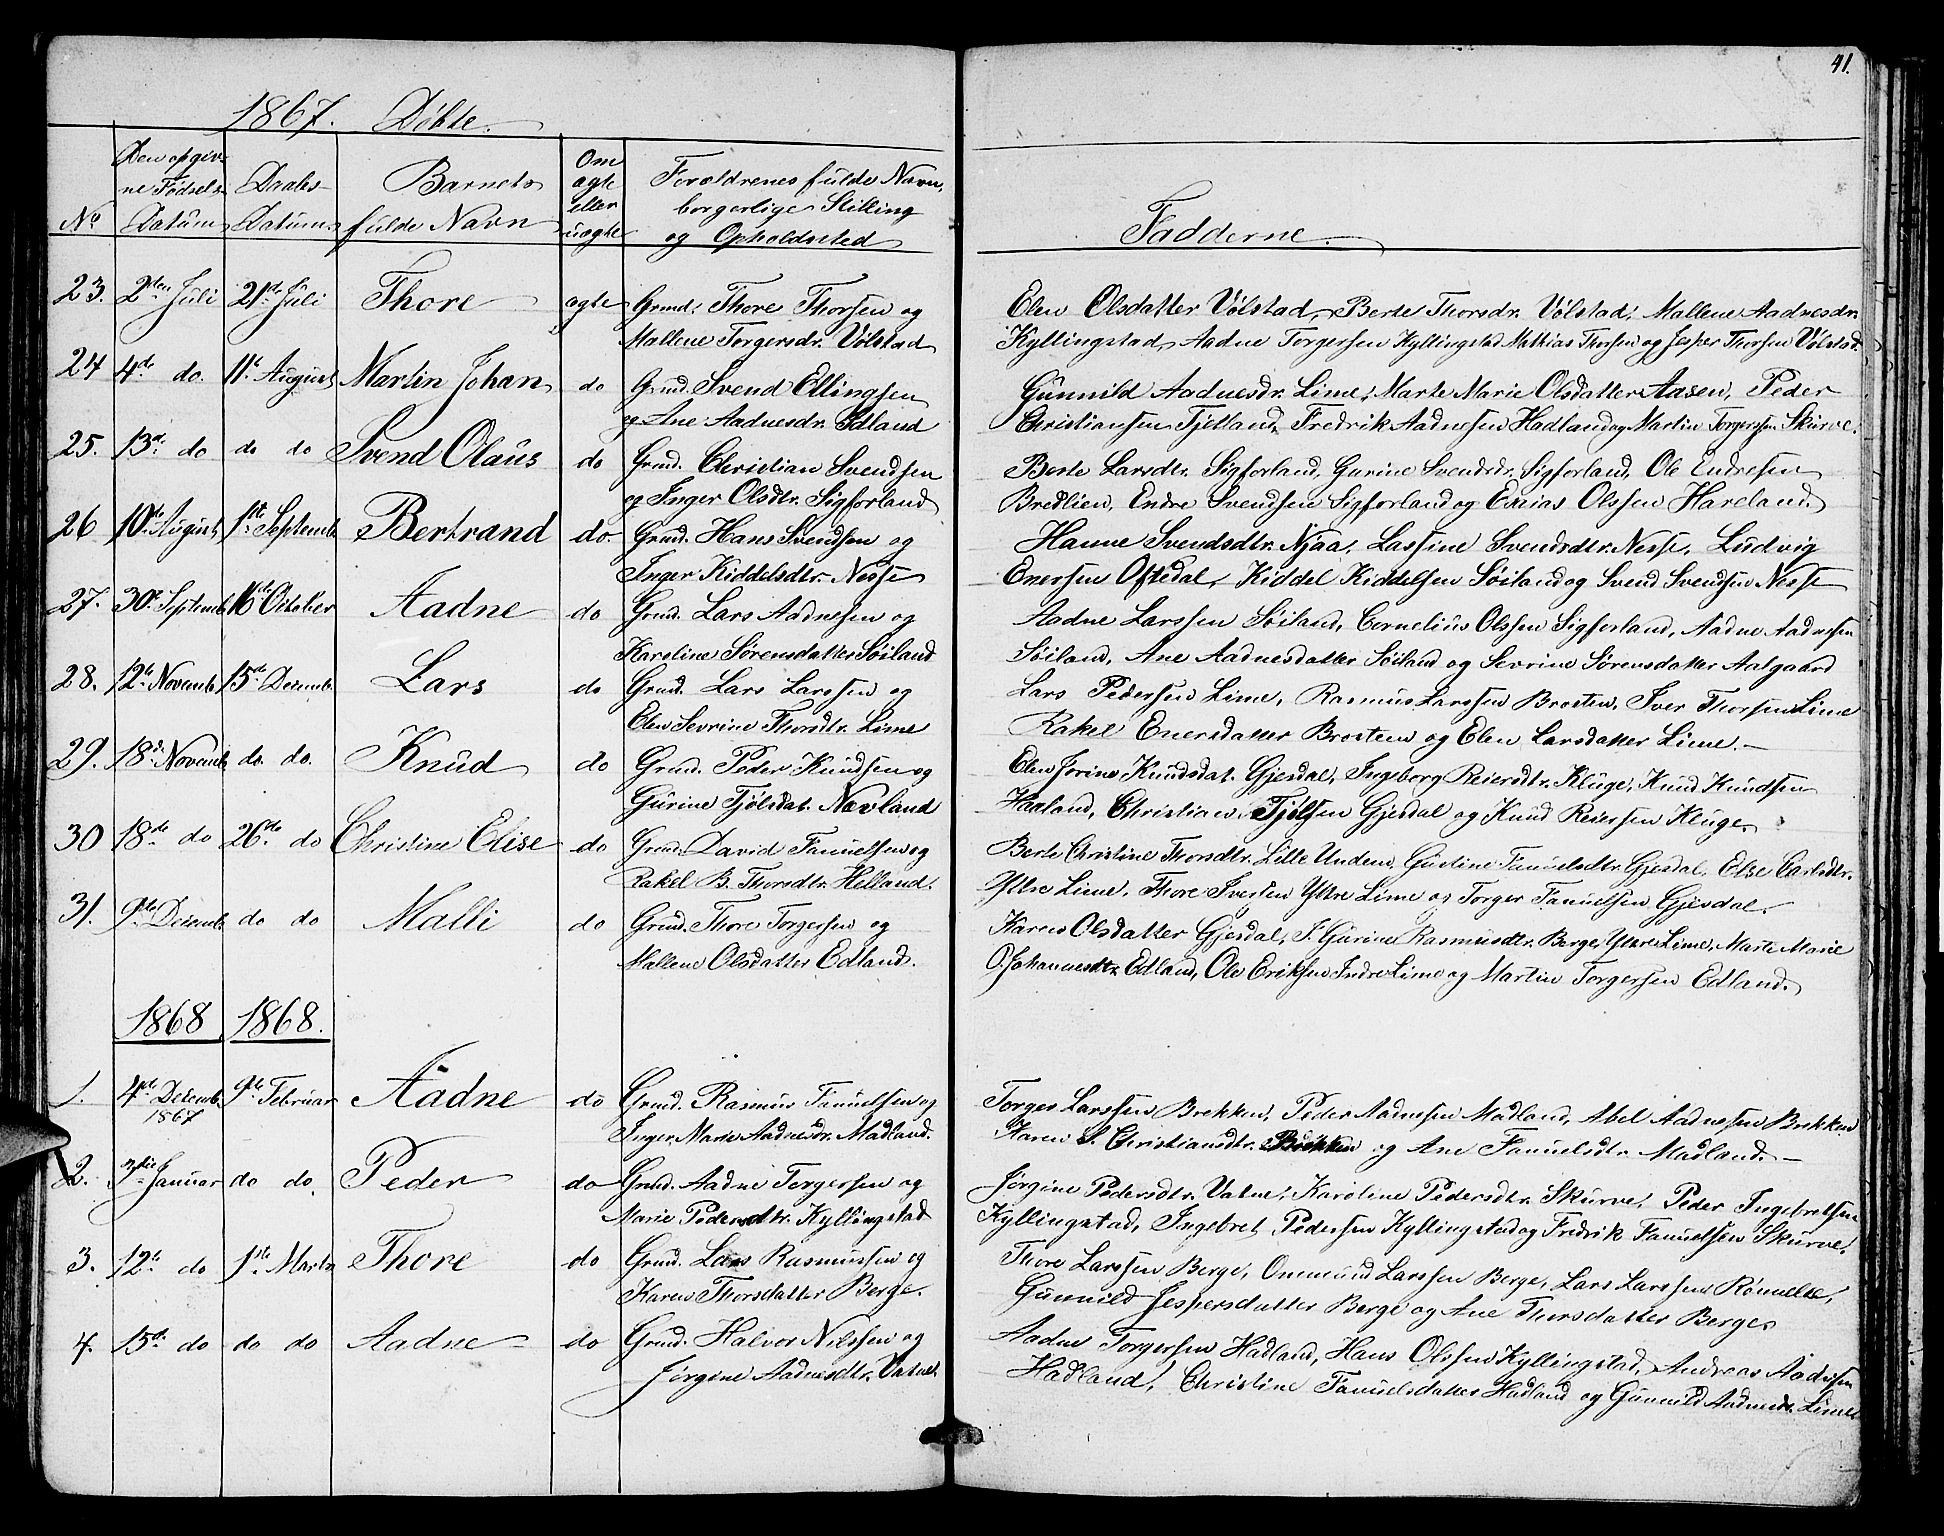 41.
1867. Døbte.
Den opgiv-
ne Fødsels-
Datum
No
Daabs-
Datum
Barnets
fulde Navn
Om
ægte
eller
uægte
Forældrenes fulde Navn,
borgerlige Stilling
og Opholdssted
Fadderne.
23. 2den Juli 21de Juli Thore ægte Grmd. Thore Thorsen og
Mallene Torgersdr. Vølstad
Elen Olsdatter Vølstad, Berte Thorsdr. Vølstad, Mallene Aadnesdr.
Kyllingstad, Aadne Torgersen Kyllingstad Mathias Thorsen og Jesper Thorsen Vølstad.
24 4de do. 11te August Martin Johan do Grmd. Svend Ellingsen
og Ane Aadnesdr. Edland
Gunnild Aadnesdr. Lime, Marte Marie Olsdatter Aasen, Peder
Christiansen Tjetland, Fredrik Aadnesen Hadland og Martin Torgersen Skurve.
25. 13de do do do Svend Olaus do Grmd. Christian Svendsen
og Inger Olsdtr. Sigforland
Berte Larsdtr. Sigforland, Gurine Svendsdr. Sigforland, Ole Endresen
Bredlien, Endre Svendsen Sigforland og Enias Olssen Hareland.
26 10de August 1ste Septemb. Bertrand do. Grmd. Hans Svendsen og
Inger Kiddelsdtr. Nesse
Hanne Svendsdtr. Njaa, Lassine Svendsdtr. Nesse, Ludvig
Enersen Oftedal, Kiddel Kiddelsen Søiland og Svend Svendsen Nesse
27. 30te Septemb. 16de October Aadne do Grmd. Lars Aadnesen og
Karoline Sørensdatter Søiland
Aadne Larssen Søiland, Cornelius Olssen Sigforland, Aadne Aadnesen
Søiland, Ane Aadnesdatter Søiland og Sevrine Sørensdatter Aalgaard
28. 12te Novemb. 15de Decemb. Lars do Grmd. Lars Larssen og
Elen Sevrine Thorsdtr. Lime
Lars Pedersen Lime, Rasmus Larssen Brosten, Iver Thorsen Lime
Rakel Enersdatter Brosten og Elen Larsdatter Lime.
29. 18de Novemb. do. do. Knud do Grmd. Peder Knudsen og
Gurine Tjølsdat. Nævland
Elen Jorine Knudsdat. Gjesdal, Ingeborg Reiersdtr. Kluge, Knud Knudsen
Haaland, Christian Tjølsen Gjesdal og Knud Reiersen Kluge.
30 18de do 26de do Christine Elise do Grmd. David Fanuelsen og
Rakel B. Thorsdtr. Helland.
Berte Christine Thorsdtr. Lille Undem, Gustine Fanuelsdtr. Gjesdal, Else Carlsdtr.
Ytre Lime, Thore Iversen Ytre Lime og Torger Fanuelsen Gjesdal.
31. 9de Decemb. do do Malli do Grmd. Thore Torgersen og
Mallene Olsdatter Edland.
Karen Olsdatter Gjesdal, J. Gurine Rasmusdtr. Berge, Ytre Lime, Marte Marie
O. Johannesdtr. Edland, Ole Eriksen Indre Lime og Martin Torgersen Edland.
1868 1868.
1. 4de Decemb. 1867 9de Februar Aadne do Grmd. Rasmus Fanuelsen og
Inger Marie Aadnesdr. Madland.
Torger Larssen Brekken, Peder Aadnesen Madland, Abel Aadnesen Brekken
Karen S. Christiansdtr. Brekken og Ane Fanuelsdtr. Madland.
2. 3die Januar do do. Peder do Grmd. Aadne Torgersen og
Marie Pedersdtr. Kyllingstad
Jørgine Pedersdtr. Vatne, Karoline Pedersdtr. Skurve, Peder Ingebretsen
Kyllingstad, Ingebret Pedersen Kyllingstad og Fredrik Fanuelsen Skurve.
3. 12te do 1ste Marts Thore do Grmd. Lars Rasmussen og
Karen Thorsdatter Berge.
Thore Larssen Berge, Onemund Larssen Berge, Lars Larssen
Gunnild Jespersdatter Berge og Ane Thorsdatter Berge.
4. 15de do do do Aadne do Grmd. Halvor Nilssen og
Jørgine Aadnesdtr. Vatne.
Aadne Torgersen Hadland, Hans Olssen Kyllingstad, Andreas Aadnesen
Hadland, Christine Fanuelsdatter Hadland og Gunnild Aadnesdr. Lime.